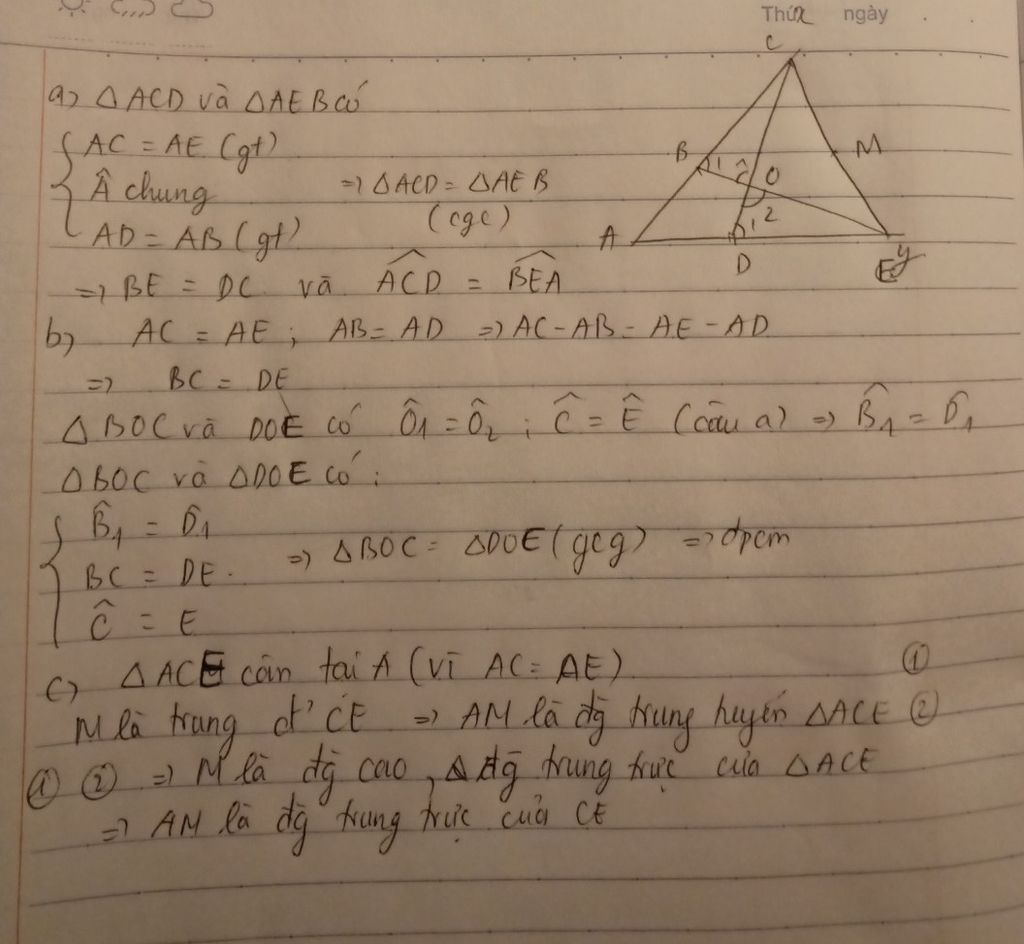 Thứ 2 ngày . .
C
B 1 1 O M
2
A 1
D E y
a) △ACD và △AEB có
AC = AE (gt)
Â chung => △ACD = △AEB
AD = AB (gt) (cgc)
=> BE = DC và ACD = BEA
b) AC = AE ; AB = AD => AC - AB = AE - AD
=> BC = DE
△BOC và DOE có Ô1 = Ô2 ; Ĉ = Ê (câu a) => B̂1 = D̂1
△BOC và △DOE có :
B̂1 = D̂1
BC = DE. => △BOC = △DOE (gcg) => đpcm
Ĉ = E
c) △ACE cân tai A (vì AC = AE) ①
M là trung đ' CE => AM là đg trung huyến △ACE ②
① ② => M là đg cao, đg trung trực của △ACE
=> AM là đg trung trực của CE